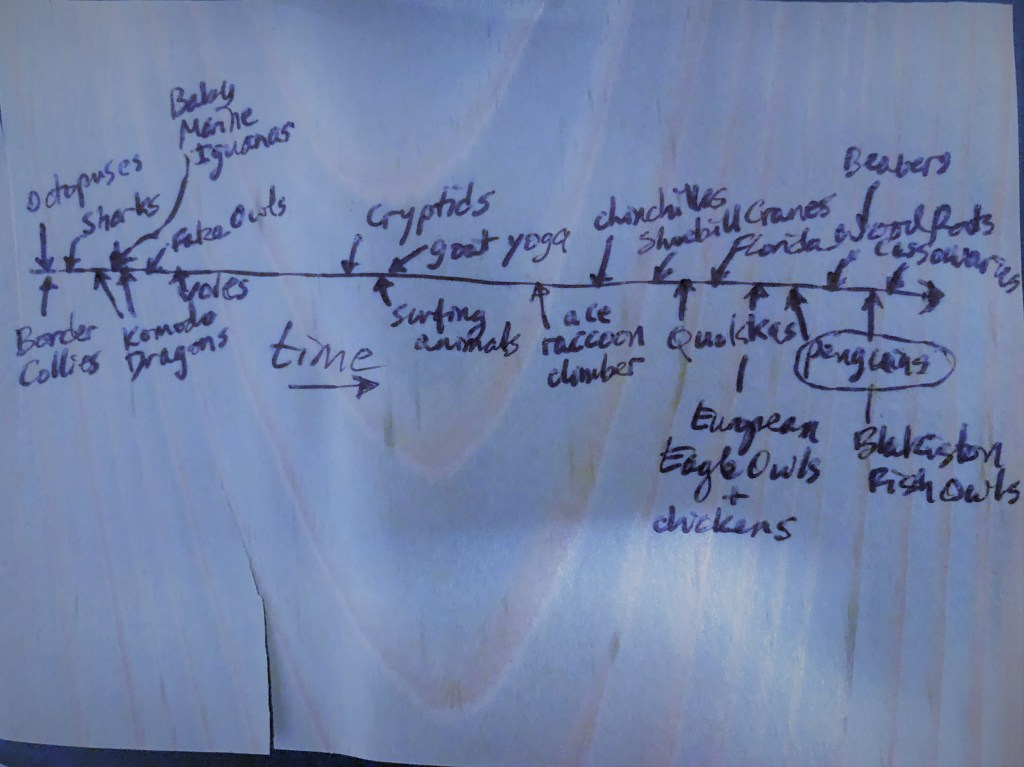 Baby
Marine
Iguanas
Octopuses
Sharks
False Owls
Cryptids
goat yoga
chinchillas
Shoebill Cranes
Florida Wood Rats
Beavers
Cassowaries
Border
Collies
Komodo
Dragons
Voles
time
surfing
animals
ace
raccoon
climber
Quokkas
penguins
European
Eagle Owls
+
chickens
Blakiston
Fish Owls